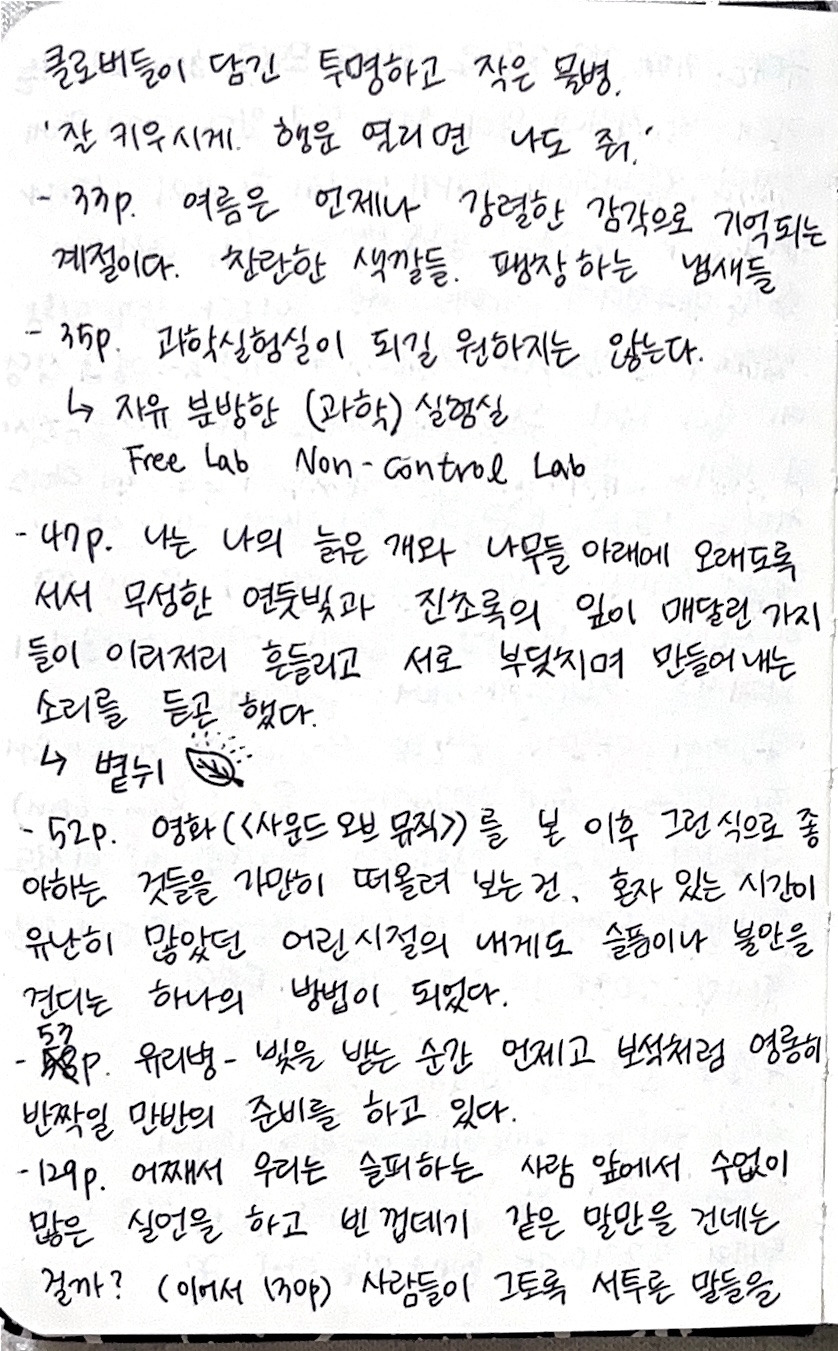 클로버들이 담긴 투명하고 작은 물병.
'잘 키우시게. 행운 열리면 나도 줘.'
- 33p. 여름은 언제나 강렬한 감각으로 기억되는
계절이다. 찬란한 색깔들. 팽창하는 냄새들
- 35p. 과학실험실이 되길 원하지는 않는다.
↳ 자유 분방한 (과학) 실험실
Free Lab Non-control Lab
- 47p. 나는 나의 늙은 개와 나무들 아래에 오래도록
서서 무성한 연둣빛과 진초록의 잎이 매달린 가지
들이 이리저리 흔들리고 서로 부딪치며 만들어내는
소리를 듣곤 했다.
↳ 볕뉘
- 52p. 영화(<<사운드 오브 뮤직>>)를 본 이후 그런 식으로 좋
아하는 것들을 가만히 떠올려 보는 건, 혼자 있는 시간이
유난히 많았던 어린 시절의 내게도 슬픔이나 불안을
견디는 하나의 방법이 되었다.
- 53p. 유리병 - 빛을 받는 순간 언제고 보석처럼 영롱히
반짝일 만반의 준비를 하고 있다.
- 129p. 어째서 우리는 슬퍼하는 사람 앞에서 수없이
많은 실언을 하고 빈 껍데기 같은 말만을 건네는
걸까? (이어서 130p) 사람들이 그토록 서투른 말들을